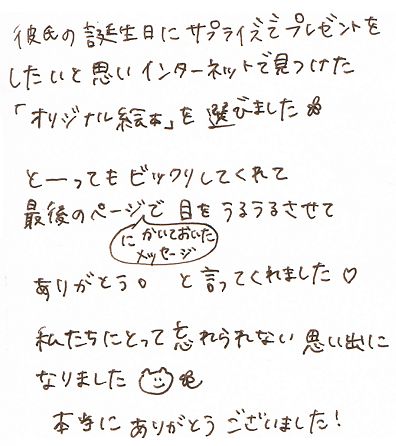 彼氏の誕生日にサプライズでプレゼントを
したいと思いインターネットで見つけた
「オリジナル絵本」を選びました
と──ってもビックリしてくれて
最後のページで目をうるうるさせて
にかいておいた
メッセージ
ありがとう。と言ってくれました♡
私たちにとって忘れられない思い出に
なりました
本当にありがとうございました!